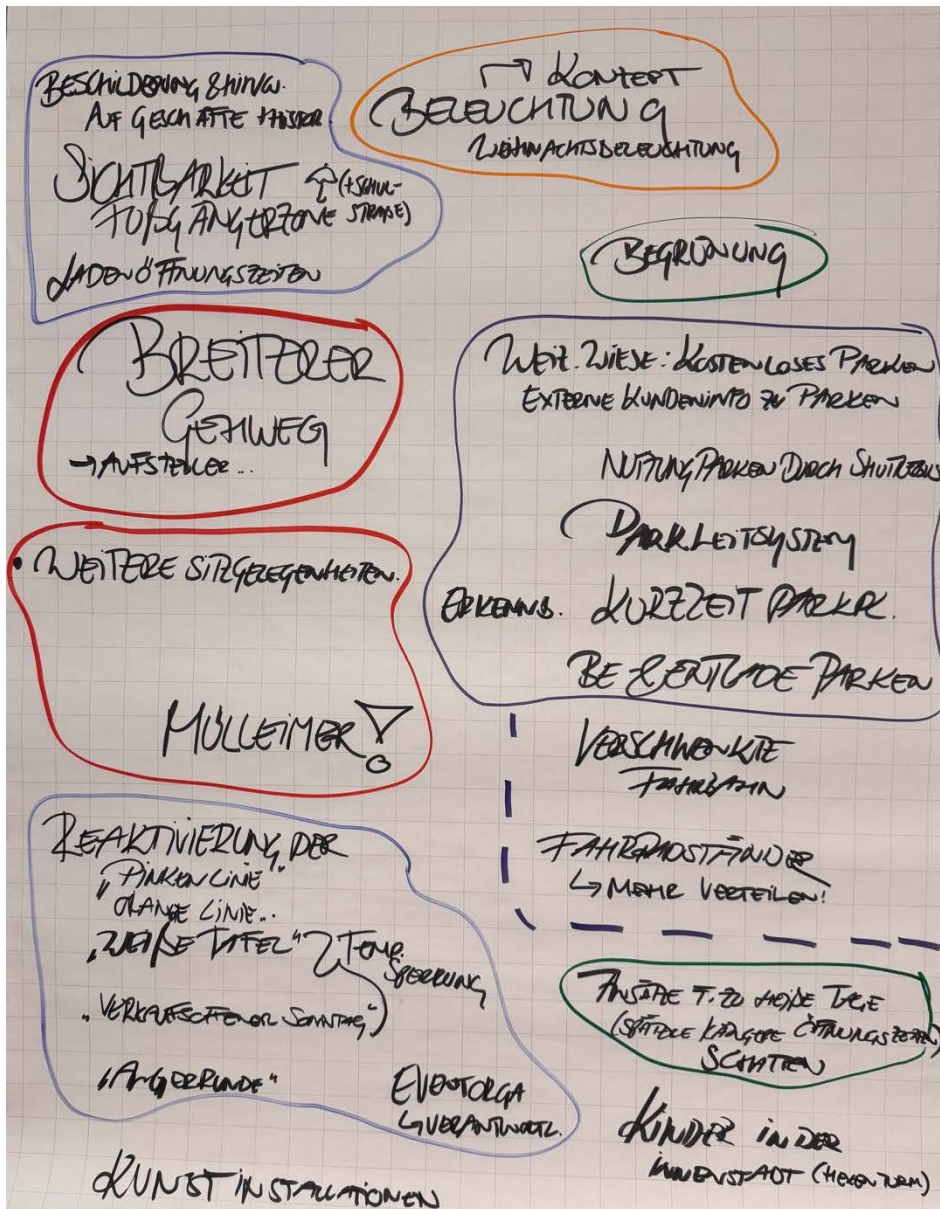 BESCHILDERUNG & HINW.
AUF GESCHÄFTE + HÄUSER
SICHTBARKEIT
FUßGÄNGERZONE (+SCHUL-
STRAßE)
LADENÖFFNUNGSZEITEN
KONZEPT
BELEUCHTUNG
WEIHNACHTSBELEUCHTUNG
BEGRÜNUNG
BREITERER
GEHWEG
→ AUFSTELLER...
• WEITERE SITZGELEGENHEITEN.
MÜLLEIMER!
WEIL. WIESE: KOSTENLOSES PARKEN
EXTERNE KUNDENINFO ZU PARKEN
NUTZUNG PARKEN DURCH
PARKLEITSYSTEM
ERKENNB. KURZZEIT PARKPL.
BE- & ENTLADE PARKEN
VERSCHWENKTE
FAHRBAHN
FAHRRADSTÄNDER
↳ MEHR VERTEILEN!
REAKTIVIERUNG DER
„PINKEN LINIE"
ORANGE LINIE..
„WEIßE TAFEL" TEMP.
SPERRUNG
„VERKAUFSOFFENER SONNTAG"
„ANGERRUNDE"
EVENTORGA
↳ VERANTWORTL.
KUNSTINSTALLATIONEN
ANSÄTZE F. ZU HEIßE TAGE
LÄNGERE ÖFFNUNGSZEITEN)
SCHATTEN
KINDER IN DER
INNENSTADT (HEXENTURM)